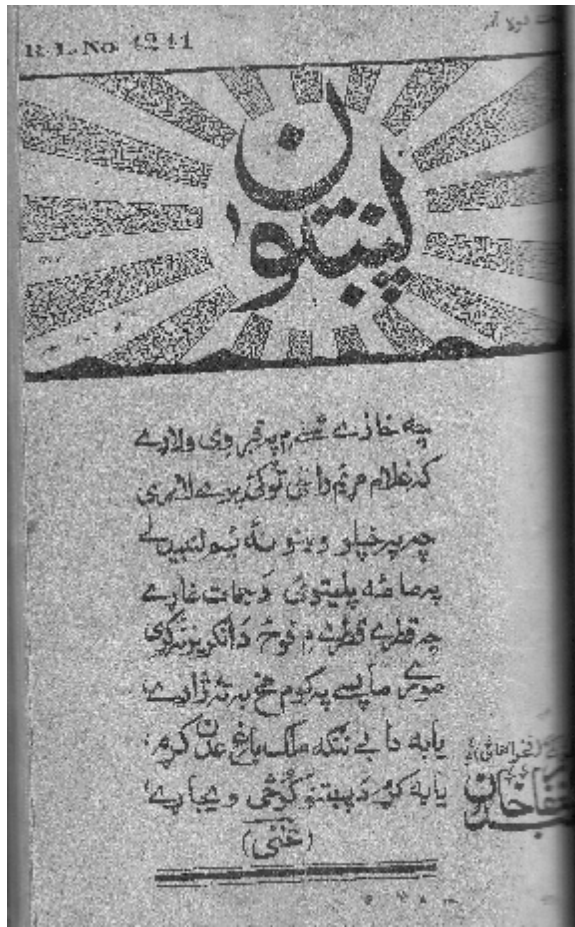 R. L. No. 4241
پښتون
چه خازے شنے م په قبر وی ولاړے
که غلام مړ یم راځئ توکئ پرے لاړی
چه په خپلو وینو نه یم لمبیدلے
په ما مه پلیتوئ د جمات غاړے
چه قطرے قطرے م فوځ د انګریز نکړی
مورے ما پسے په کوم مخ به ته ژاړے،
یا به دا بے ننګه ملک باغ عدن کړم،
یا به کړم د پښتنو کوڅی ویجاړے،
(غنی)
خان